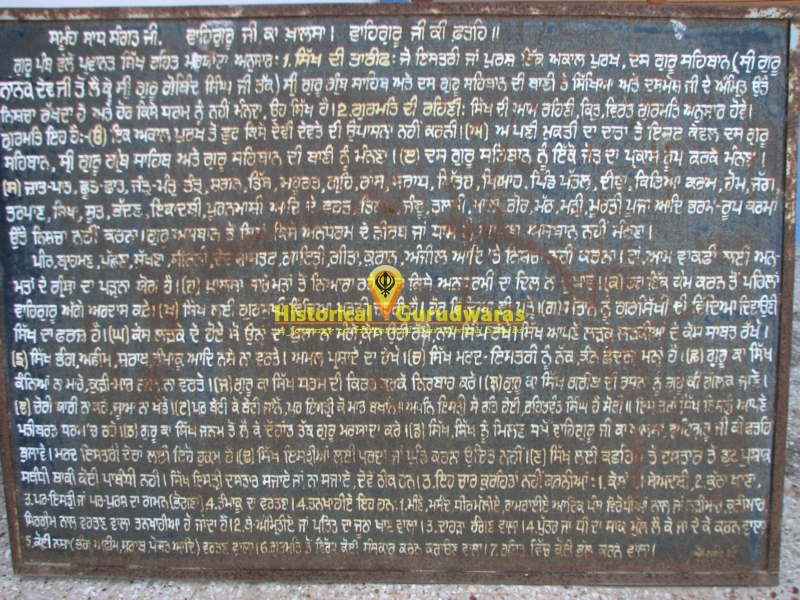 ਸਮੂੰਹ ਸਾਧ ਸੰਗਤ ਜੀ, ਵਾਹਿਗੁਰੂ ਜੀ ਕਾ ਖ਼ਾਲਸਾ। ਵਾਹਿਗੁਰੂ ਜੀ ਕੀ ਫ਼ਤਹਿ॥
ਗੁਰੂ ਪੰਥ ਵਲੋਂ ਪ੍ਰਵਾਨਤ ਸਿੱਖ ਰਹਿਤ ਮਰਯਾਦਾ ਅਨੁਸਾਰ: 1. ਸਿੱਖ ਦੀ ਤਾਰੀਫ਼: ਜੋ ਇਸਤਰੀ ਜਾਂ ਪੁਰਸ਼ ਇੱਕ ਅਕਾਲ ਪੁਰਖ, ਦਸ ਗੁਰੂ ਸਹਿਬਾਨ (ਸ੍ਰੀ ਗੁਰੂ
ਨਾਨਕ ਦੇਵ ਜੀ ਤੋਂ ਲੈ ਕੇ ਸ੍ਰੀ ਗੁਰੂ ਗੋਬਿੰਦ ਸਿੰਘ ਜੀ ਤੱਕ) ਸ੍ਰੀ ਗੁਰੂ ਗ੍ਰੰਥ ਸਾਹਿਬ ਅਤੇ ਦਸ ਗੁਰੂ ਸਹਿਬਾਨ ਦੀ ਬਾਣੀ ਤੇ ਸਿੱਖਿਆ ਅਤੇ ਦਸਮੇਸ਼ ਜੀ ਦੇ ਅੰਮ੍ਰਿਤ ਉਤੇ
ਨਿਸ਼ਚਾ ਰੱਖਦਾ ਹੈ ਅਤੇ ਹੋਰ ਕਿਸੇ ਧਰਮ ਨੂੰ ਨਹੀਂ ਮੰਨਦਾ, ਉਹ ਸਿੱਖ ਹੈ। 2. ਗੁਰਮਤਿ ਦੀ ਰਹਿਣੀ: ਸਿੱਖ ਦੀ ਆਮ ਰਹਿਣੀ, ਕਿਰਤ, ਵਿਰਤ ਗੁਰਮਤਿ ਅਨੁਸਾਰ ਹੋਵੇ।
ਗੁਰਮਤਿ ਇਹ ਹੈ:- (ੳ) ਇਕ ਅਕਾਲ ਪੁਰਖ ਤੋਂ ਛੁਟ ਕਿਸੇ ਦੇਵੀ ਦੇਵਤੇ ਦੀ ਉਪਾਸਨਾ ਨਹੀਂ ਕਰਨੀ। (ਅ) ਆਪਣੀ ਮੁਕਤੀ ਦਾ ਦਾਤਾ ਤੇ ਇਸ਼ਟ ਕੇਵਲ ਦਸ ਗੁਰੂ
ਸਹਿਬਾਨ, ਸ੍ਰੀ ਗੁਰੂ ਗ੍ਰੰਥ ਸਾਹਿਬ ਅਤੇ ਗੁਰੂ ਸਹਿਬਾਨ ਦੀ ਬਾਣੀ ਨੂੰ ਮੰਨਣਾ। (ੲ) ਦਸ ਗੁਰੂ ਸਹਿਬਾਨ ਨੂੰ ਇੱਕੋ ਜੋਤ ਦਾ ਪ੍ਰਕਾਸ਼ ਰੂਪ ਕਰਕੇ ਮੰਨਣਾ।
(ਸ) ਜ਼ਾਤ-ਪਾਤ, ਛੂਤ-ਛਾਤ, ਜੰਤ੍ਰ-ਮੰਤ੍ਰ ਤੰਤ੍ਰ, ਸ਼ਗਨ, ਤਿੱਥ, ਮਹੂਰਤ, ਗ੍ਰਹਿ, ਰਾਸ਼, ਸ਼ਰਾਧ, ਪਿੱਤਰ, ਖਿਆਹ, ਪਿੰਡ ਪੱਤਲ, ਦੀਵਾ, ਕਿਰਿਆ ਕਰਮ, ਹੋਮ, ਜੱਗ,
ਤਰਪਣ, ਸਿਖਾ, ਸੂਤ, ਭੱਦਣ, ਇਕਾਦਸ਼ੀ, ਪੂਰਨਮਾਸ਼ੀ ਆਦਿ ਦੇ ਵਰਤ, ਤਿਲਕ, ਜੰਞੂ, ਤੁਲਸੀ, ਮਾਲਾ, ਗੋਰ, ਮੱਠ, ਮੜ੍ਹੀ, ਮੂਰਤੀ ਪੂਜਾ ਆਦਿ ਭਰਮ-ਰੂਪ ਕਰਮਾਂ
ਉੱਤੇ ਨਿਸ਼ਚਾ ਨਹੀਂ ਕਰਨਾ। ਗੁਰ ਅਸਥਾਨ ਤੋਂ ਬਿਨਾਂ ਕਿਸੇ ਅਨਧਰਮ ਦੇ ਤੀਰਥ ਜਾਂ ਧਾਮ ਨੂੰ ਆਪਣਾ ਅਸਥਾਨ ਨਹੀਂ ਮੰਨਣਾ।
ਪੀਰ, ਬ੍ਰਾਹਮਣ, ਪੁੱਛਣਾ, ਸੁੱਖਣਾ, ਸ਼ੀਰਨੀ, ਵੇਦ ਸ਼ਾਸਤਰ, ਗਾਇਤ੍ਰੀ, ਗੀਤਾ, ਕੁਰਾਨ, ਅੰਜੀਲ ਆਦਿ 'ਤੇ ਨਿਸ਼ਚਾ ਨਹੀਂ ਕਰਨਾ। ਹਾਂ, ਆਮ ਵਾਕਫ਼ੀ ਲਈ ਅਨ-
ਮਤਾਂ ਦੇ ਗ੍ਰੰਥਾਂ ਦਾ ਪੜ੍ਹਨਾ ਯੋਗ ਹੈ। (ਹ) ਖ਼ਾਲਸਾ ਸਾਰੇ ਮਤਾਂ ਤੋਂ ਨਿਆਰਾ ਰਹੇ ਕਿਸੇ ਅਨਧਰਮੀ ਦਾ ਦਿਲ ਨਾ ਦੁਖਾਵੇ। (ਕ) ਹਰ ਇਕ ਕੰਮ ਕਰਨ ਤੋਂ ਪਹਿਲਾਂ
ਵਾਹਿਗੁਰੂ ਅੱਗੇ ਅਰਦਾਸ ਕਰੇ। (ਖ) ਸਿੱਖ ਲਈ ਗੁਰਮੁਖੀ (ਗ) ਸੰਤਾਨ ਨੂੰ ਗੁਰਸਿੱਖੀ ਦੀ ਵਿੱਦਿਆ ਦਿਵਾਉਣੀ
ਸਿੱਖ ਦਾ ਫਰਜ਼ ਹੈ। (ਘ) ਕੇਸ ਲੜਕੇ ਦੇ ਹੋਏ ਸਿੱਖ ਆਪਣੇ ਲੜਕੇ ਲੜਕੀਆਂ ਦੇ ਕੇਸ ਸਾਬਤ ਰੱਖੇ।
(ਙ) ਸਿੱਖ ਭੰਗ, ਅਫੀਮ, ਸ਼ਰਾਬ, ਤਮਾਕੂ ਆਦਿ ਨਸ਼ੇ ਨਾ ਵਰਤੇ। ਅਮਲ ਪ੍ਰਸ਼ਾਦੇ ਦਾ ਰੱਖੇ। (ਚ) ਸਿੱਖ ਮਰਦ-ਇਸਤਰੀ ਨੂੰ ਨੱਕ, ਕੰਨ ਛੇਦਣਾ ਮਨ੍ਹਾ ਹੈ। (ਛ) ਗੁਰੂ ਕਾ ਸਿੱਖ
ਕੰਨਿਆ ਨਾ ਮਾਰੇ, ਕੁੜੀ-ਮਾਰ ਨਾਲ ਨਾ ਵਰਤੇ। (ਜ) ਗੁਰੂ ਕਾ ਸਿੱਖ ਧਰਮ ਦੀ ਕਿਰਤ ਕਰਕੇ ਨਿਰਬਾਹ ਕਰੇ। (ਝ) ਗੁਰੂ ਕਾ ਸਿੱਖ ਗਰੀਬ ਦੀ ਰਸਨਾ ਨੂੰ ਗੁਰੂ ਕੀ ਗੋਲਕ ਜਾਣੇ।
(ਞ) ਚੋਰੀ ਯਾਰੀ ਨਾ ਕਰੇ, ਜੂਆ ਨਾ ਖੇਡੇ। (ਟ) ਪਰ ਬੇਟੀ ਕੋ ਬੇਟੀ ਜਾਨੈ, ਪਰ ਇਸਤ੍ਰੀ ਕੋ ਮਾਤ ਬਖਾਨੈ॥ ਅਪਨਿ ਇਸਤ੍ਰੀ ਸੋ ਰਤਿ ਹੋਈ, ਰਹਿਤਵੰਤ ਸਿੰਘ ਹੈ ਸੋਈ॥ ਇਸੇ ਤਰ੍ਹਾਂ ਸਿੱਖ ਇਸਤ੍ਰੀ ਆਪਣੇ
ਪਤੀਬਰਤ ਧਰਮ 'ਚ ਰਹੇ। (ਠ) ਗੁਰੂ ਕਾ ਸਿੱਖ ਜਨਮ ਤੋਂ ਲੈ ਕੇ ਦੇਹਾਂਤ ਤੱਕ ਗੁਰ ਮਰਯਾਦਾ ਕਰੇ। (ਡ) ਸਿੱਖ, ਸਿੱਖ ਨੂੰ ਮਿਲਣ ਸਮੇਂ ਵਾਹਿਗੁਰੂ ਜੀ ਕਾ ਖਾਲਸਾ, ਵਾਹਿਗੁਰੂ ਜੀ ਕੀ ਫਤਹਿ
ਬੁਲਾਵੇ। ਮਰਦ ਇਸਤਰੀ ਦੋਹਾਂ ਲਈ ਇਹੋ ਹੁਕਮ ਹੈ। (ਢ) ਸਿੱਖ ਇਸਤਰੀਆਂ ਲਈ ਪਰਦਾ ਜਾਂ ਘੁੰਡ ਕਰਨਾ ਉਚਿਤ ਨਹੀਂ। (ਣ) ਸਿੱਖ ਲਈ ਕਛਹਿਰੇ ਤੇ ਦਸਤਾਰ ਤੋਂ ਛੁਟ ਪੁਸ਼ਾਕ
ਸਬੰਧੀ ਬਾਕੀ ਕੋਈ ਪਾਬੰਧੀ ਨਹੀਂ। ਸਿੱਖ ਇਸਤ੍ਰੀ ਦਸਤਾਰ ਸਜਾਏ ਜਾਂ ਨਾ ਸਜਾਏ, ਦੋਵੇਂ ਠੀਕ ਹਨ। 3. ਇਹ ਚਾਰ ਕੁਰਹਿਤਾਂ ਨਹੀਂ ਕਰਨੀਆਂ: 1. ਕੇਸਾਂ ਦੀ ਬੇਅਦਬੀ, 2. ਕੁੱਠਾ ਖਾਣਾ,
3. ਪਰ-ਇਸਤ੍ਰੀ ਜਾਂ ਪਰ-ਪੁਰਸ਼ ਦਾ ਗਮਨ (ਭੋਗਣਾ) 4. ਤੰਮਾਕੂ ਦਾ ਵਰਤਣਾ। 4. ਤਨਖਾਹੀਏ ਇਹ ਹਨ: 1. ਮੀਣੇ, ਮਸੰਦ, ਧੀਰਮੱਲੀਏ, ਰਾਮਰਾਈਏ ਆਦਿਕ ਪੰਥ ਵਿਰੋਧੀਆਂ ਨਾਲ ਜਾਂ ਨੜੀਮਾਰ, ਕੁੜੀਮਾਰ
ਸਿਰਗੁੰਮ ਨਾਲ ਵਰਤਣ ਵਾਲਾ ਤਨਖਾਹੀਆ ਹੋ ਜਾਂਦਾ ਹੈ। 2. ਬੇ-ਅੰਮ੍ਰਿਤੀਏ ਜਾਂ ਪਤਿਤ ਦਾ ਜੂਠਾ ਖਾਣ ਵਾਲਾ। 3. ਦਾਹੜਾ ਰੰਗਣ ਵਾਲਾ। 4. ਪੁੱਤਰ ਜਾਂ ਧੀ ਦਾ ਸਾਕ ਮੁੱਲ ਲੈ ਕੇ ਜਾਂ ਦੇ ਕੇ ਕਰਨ ਵਾਲਾ
5. ਕੋਈ ਨਸ਼ਾ (ਭੰਗ ਅਫੀਮ, ਸ਼ਰਾਬ ਪੋਸਤ ਆਦਿ) ਵਰਤਣ ਵਾਲਾ। 6. ਗੁਰਮਤਿ ਤੋਂ ਵਿਰੁੱਧ ਕੋਈ ਸੰਸਕਾਰ ਕਰਨ ਕਰਾਉਣ ਵਾਲਾ। 7. ਰਹਿਤ ਵਿੱਚ ਕੋਈ ਭੁੱਲ ਕਰਨ ਵਾਲਾ।
Historical Gurudwaras